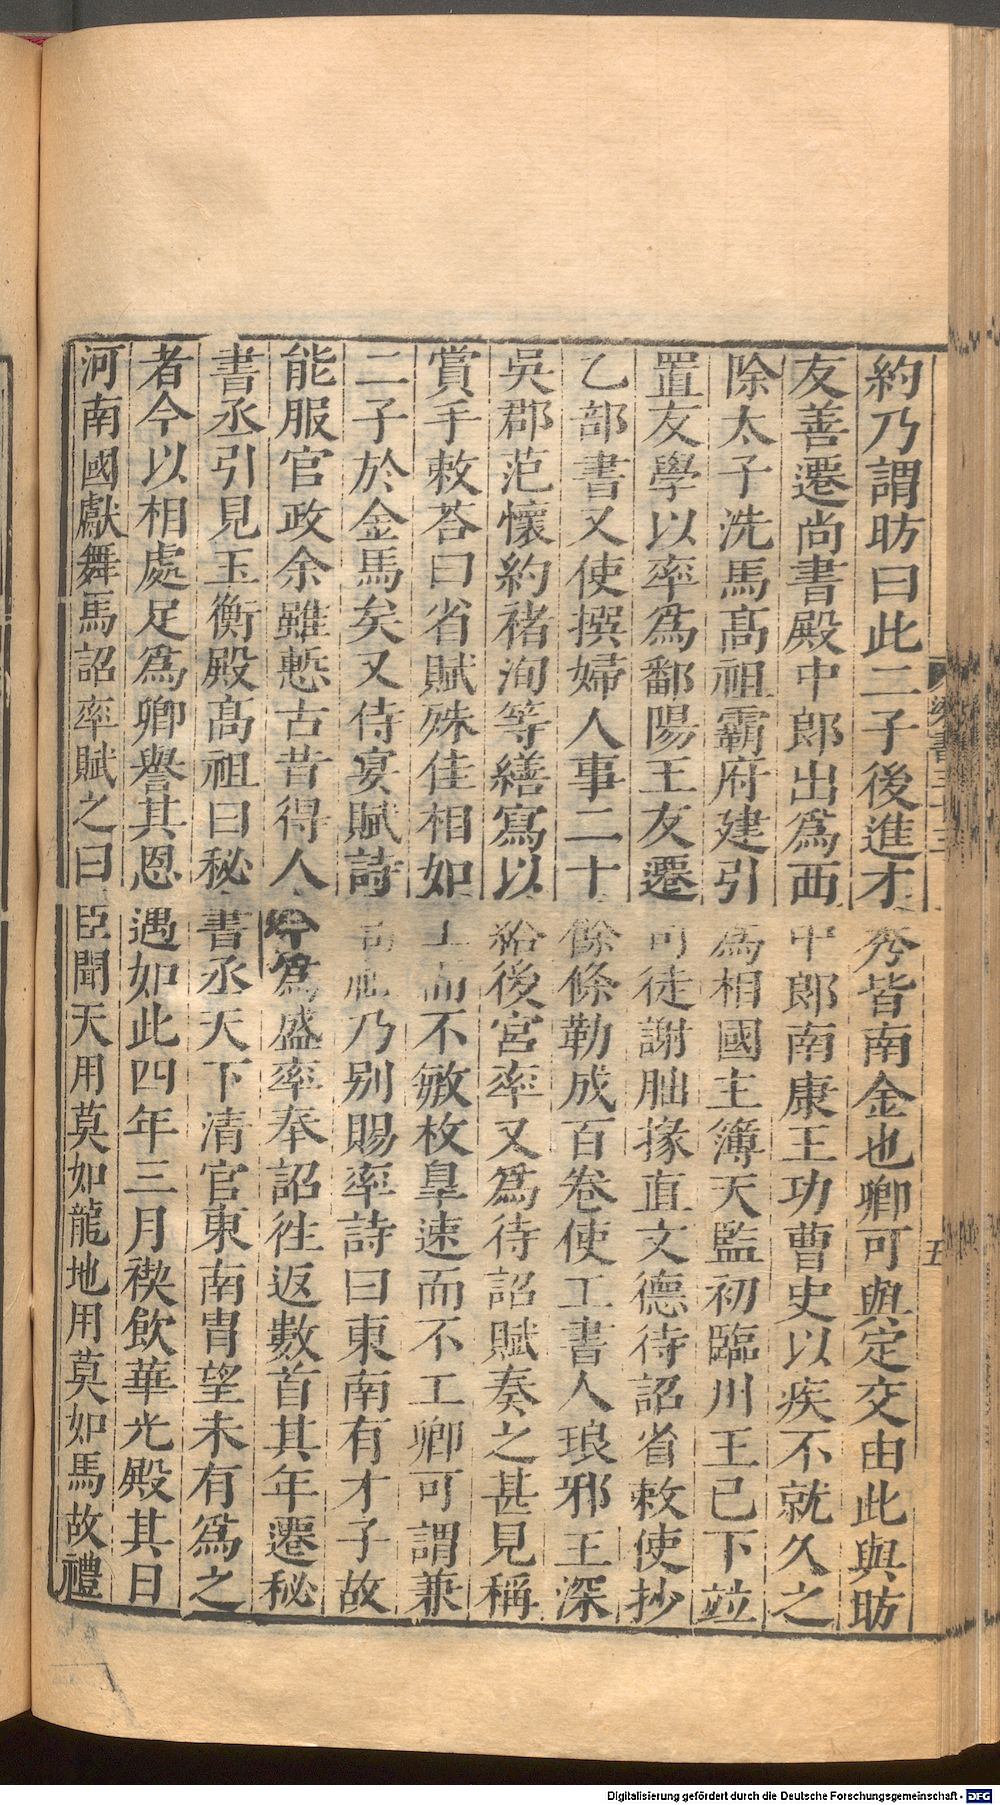 約乃謂昉曰此二子後進才秀皆南金也卿可與定交由此與昉
友善遷尚書殿中郎出爲西中郎南康王功曹史以疾不就久之
除太子洗馬髙祖霸府建引爲相國主簿天監初臨川王已下竝
置友學以率爲鄱陽王友遷司徒謝朏掾直文德待詔省敕使抄
乙部書又使撰婦人事二十餘條勒成百卷使工書人琅邪王深
吳郡范懷約褚洵等繕寫以給後宮率又爲待詔賦奏之甚見稱
賞手敕荅曰省賦殊佳相如工而不敏枚臯速而不工卿可謂兼
二子於金馬矣又侍宴賦詩髙祖乃别賜率詩曰東南有才子故
能服官政余雖慙古昔得人今爲盛率奉詔徃返數首其年遷秘
書丞引見玉衡殿髙祖曰秘書丞天下清官東南胄望未有爲之
者今以相處足爲卿譽其恩遇如此四年三月禊飲華光殿其日
河南國獻舞馬詔率賦之曰臣聞天用莫如龍地用莫如馬故禮
梁書三十三
五
Digitalisierung gefördert durch die Deutsche Forschungsgemeinschaft - DFG